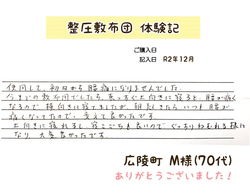 整圧敷布団 体験記
ご購入日
記入日 R2年12月
使用して、初日から腰痛になりませんでした。
今までの敷布団でしたら、真っすぐ上向きに寝ると、腰が痛く
なるので横向きに寝てましたが、朝起きたらいつも腰が
痛くなってたので、変えて良かったです。
上向きに寝れるし、寝ごこちも良いので、ぐっすりねむれる様に
なり、大変良かったです。
広陵町 M様(70代)
ありがとうございました!